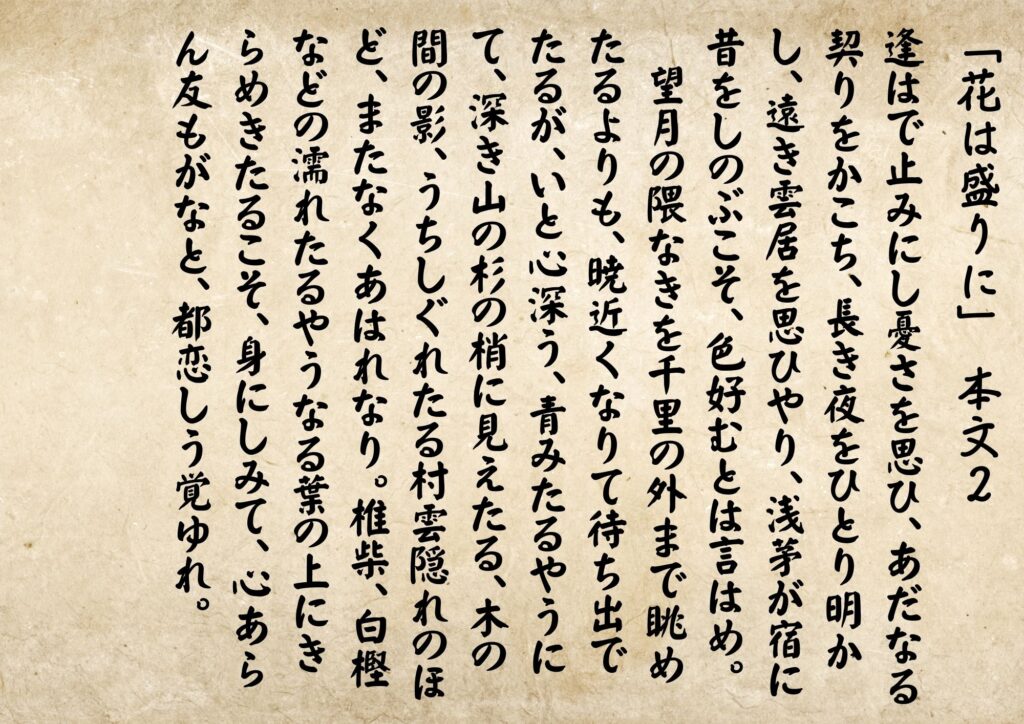 「花は盛りに」　本文2
逢はで止みにし憂さを思ひ、あだなる
契りをかこち、長き夜をひとり明か
し、遠き雲居を思ひやり、浅茅が宿に
昔をしのぶこそ、色好むとは言はめ。
　望月の隈なきを千里の外まで眺め
たるよりも、暁近くなりて待ち出で
たるが、いと心深う、青みたるやうに
て、深き山の杉の梢に見えたる、木の
間の影、うちしぐれたる村雲隠れのほ
ど、またなくあはれなり。椎柴、白樫
などの濡れたるやうなる葉の上にき
らめきたるこそ、身にしみて、心あら
ん友もがなと、都恋しう覚ゆれ。